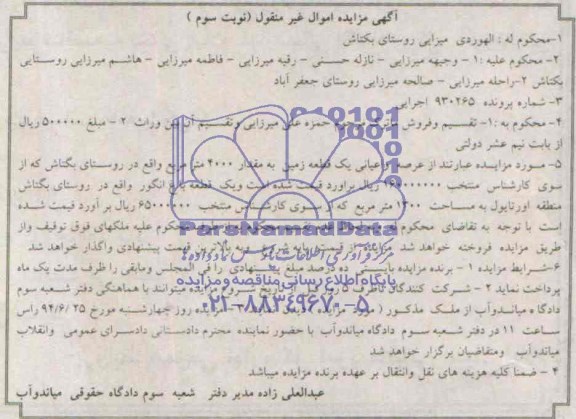 آگهی مزایده اموال غیر منقول (نوبت سوم )
۱-محکوم له : الهوردی میزایی روستای بکتاش
۲- محکوم علیه :۱ - وجیهه میرزایی - نازله حسنی - رقیه میرزایی - فاطمه میرزایی - هاشم میرزایی روستایی
بکتاش ۲-راحله میرزایی - صالحه میرزایی روستای جعفر آباد
۳- شماره پرونده ۹۳۰۲۶۵ اجرایی
۴- محکوم به :۱- تقسیم وفروش مرحوم حمزه علی میرزایی وتقسیم آن بین وراث ۲ - مبلغ ۵۰۰۰۰۰ ریال
از بابت نیم عشر دولتی
۵- مورد مزایده عبارتند از عرصه واعیانی یک قطعه زمین به مقدار ۴۰۰۰ متر مربع واقع در روستای بگتاش که از
سوی کارشناس منتخب ریال براورد قیمت شده است ویک قطعه باغ انگور واقع در روستای بگتاش
منطقه اورتاپول به مساحت ۱۳۰۰ متر مربع که از سوی کارشناس منتخب ۶۵۰۰۰۰۰۰ ریال بر آورد قیمت شده
است با توجه به تقاضای محکوم علیه ملکهای فوق توقیف واز
طریق مزایده فروخته خواهد شد مزایده از قیمت پایه شروع و به بالاترین قیمت پیشنهادی واگذار خواهد شد
۶-شرایط مزایده ۱ - برنده مزایده بایستی ده درصد مبلغ پیشنهادی را فی المجلس ومابقی را ظرف مدت یک ماه
پرداخت نماید ۲ - شرکت کنندگان میتوانند با هماهنگی دفتر شعبه سوم
دادگاه میاندوآب از ملک مذکور ( مورد مزایده ) مزایده روز چهارشنبه مورخ ۹۴/۶/۲۵ راس
ساعت ۱۱ در دفتر شعبه سوم دادگاه میاندوآب با حضور نماینده محترم دادستانی دادسرای عمومی وانقلاب
میاندوآب ومتقاضیان برگزار خواهد شد
۴ - ضمنا کلیه هزینه های نقل وانتقال بر عهده برنده مزایده میباشد
عبدالعلی زاده مدیر دفتر شعبه سوم دادگاه حقوقی میاندوآب
ParsNamadData
مرکز فرآوری اطلاعات پارس نماد داده ها
پایگاه اطلاع رسانی مناقصه ومزایده
۰۲۱-۸۸۳۴۹۶۷۰-۵